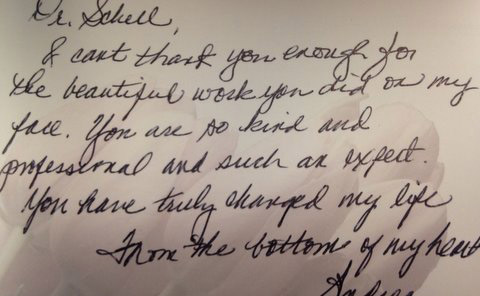 Dr. Schell,
I cant thank you enough for
the beautiful work you did on my
face. You are so kind and
professional and such an expert.
You have truly changed my life
From the bottom of my heart
Andrea